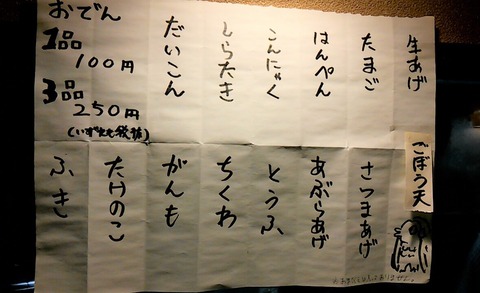 おでん
1品
100円
3品
250円
(いずれも税抜)
生あげ
たまご
はんぺん
こんにゃく
しらたき
だいこん
ごぼう天
さつまあげ
あぶらあげ
とうふ
ちくわ
がんも
たけのこ
ふき